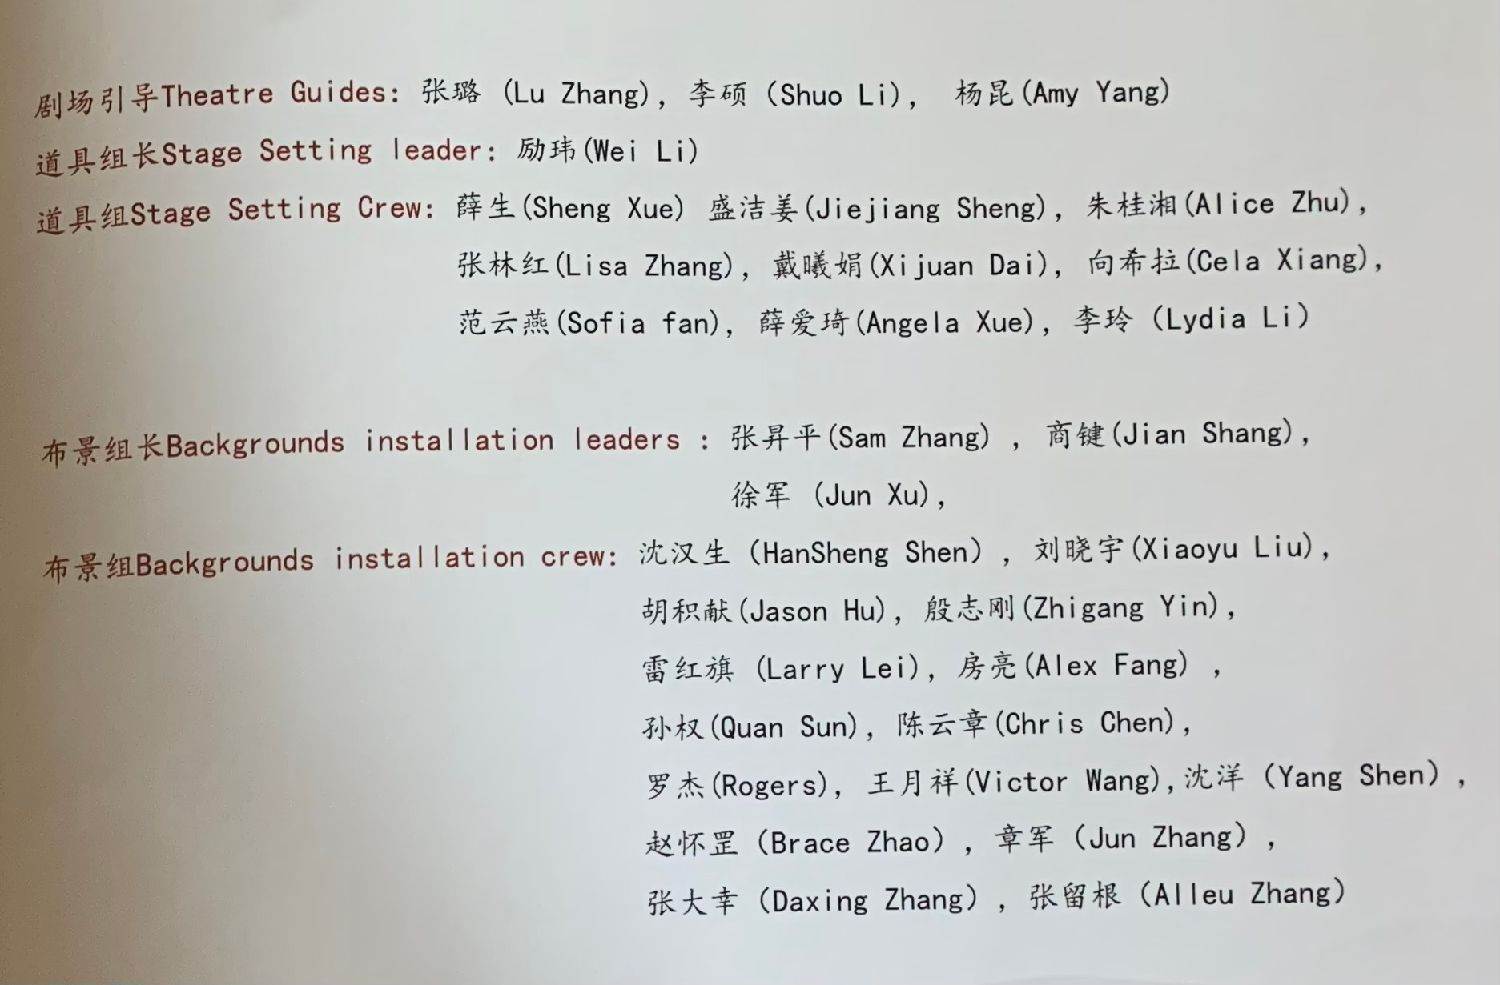 剧场引导Theatre Guides: 张璐 (Lu Zhang), 李硕 (Shuo Li), 杨昆(Amy Yang)
道具组长Stage Setting leader: 励玮(Wei Li)
道具组Stage Setting Crew: 薛生(Sheng Xue) 盛洁姜(Jiejiang Sheng), 朱桂湘(Alice Zhu),
张林红(Lisa Zhang), 戴曦娟(Xijuan Dai), 向希拉(Cela Xiang),
范云燕(Sofia fan), 薛爱琦(Angela Xue), 李玲 (Lydia Li)
布景组长Backgrounds installation leaders : 张昇平(Sam Zhang) , 商键(Jian Shang),
徐军 (Jun Xu),
布景组Backgrounds installation crew: 沈汉生 (HanSheng Shen) , 刘晓宇(Xiaoyu Liu),
胡积献(Jason Hu), 殷志刚(Zhigang Yin),
雷红旗 (Larry Lei), 房亮(Alex Fang) ,
孙权(Quan Sun), 陈云章(Chris Chen),
罗杰(Rogers), 王月祥(Victor Wang),沈洋 (Yang Shen) ,
赵怀罡 (Brace Zhao) , 章军 (Jun Zhang) ,
张大幸 (Daxing Zhang) , 张留根 (Alleu Zhang)